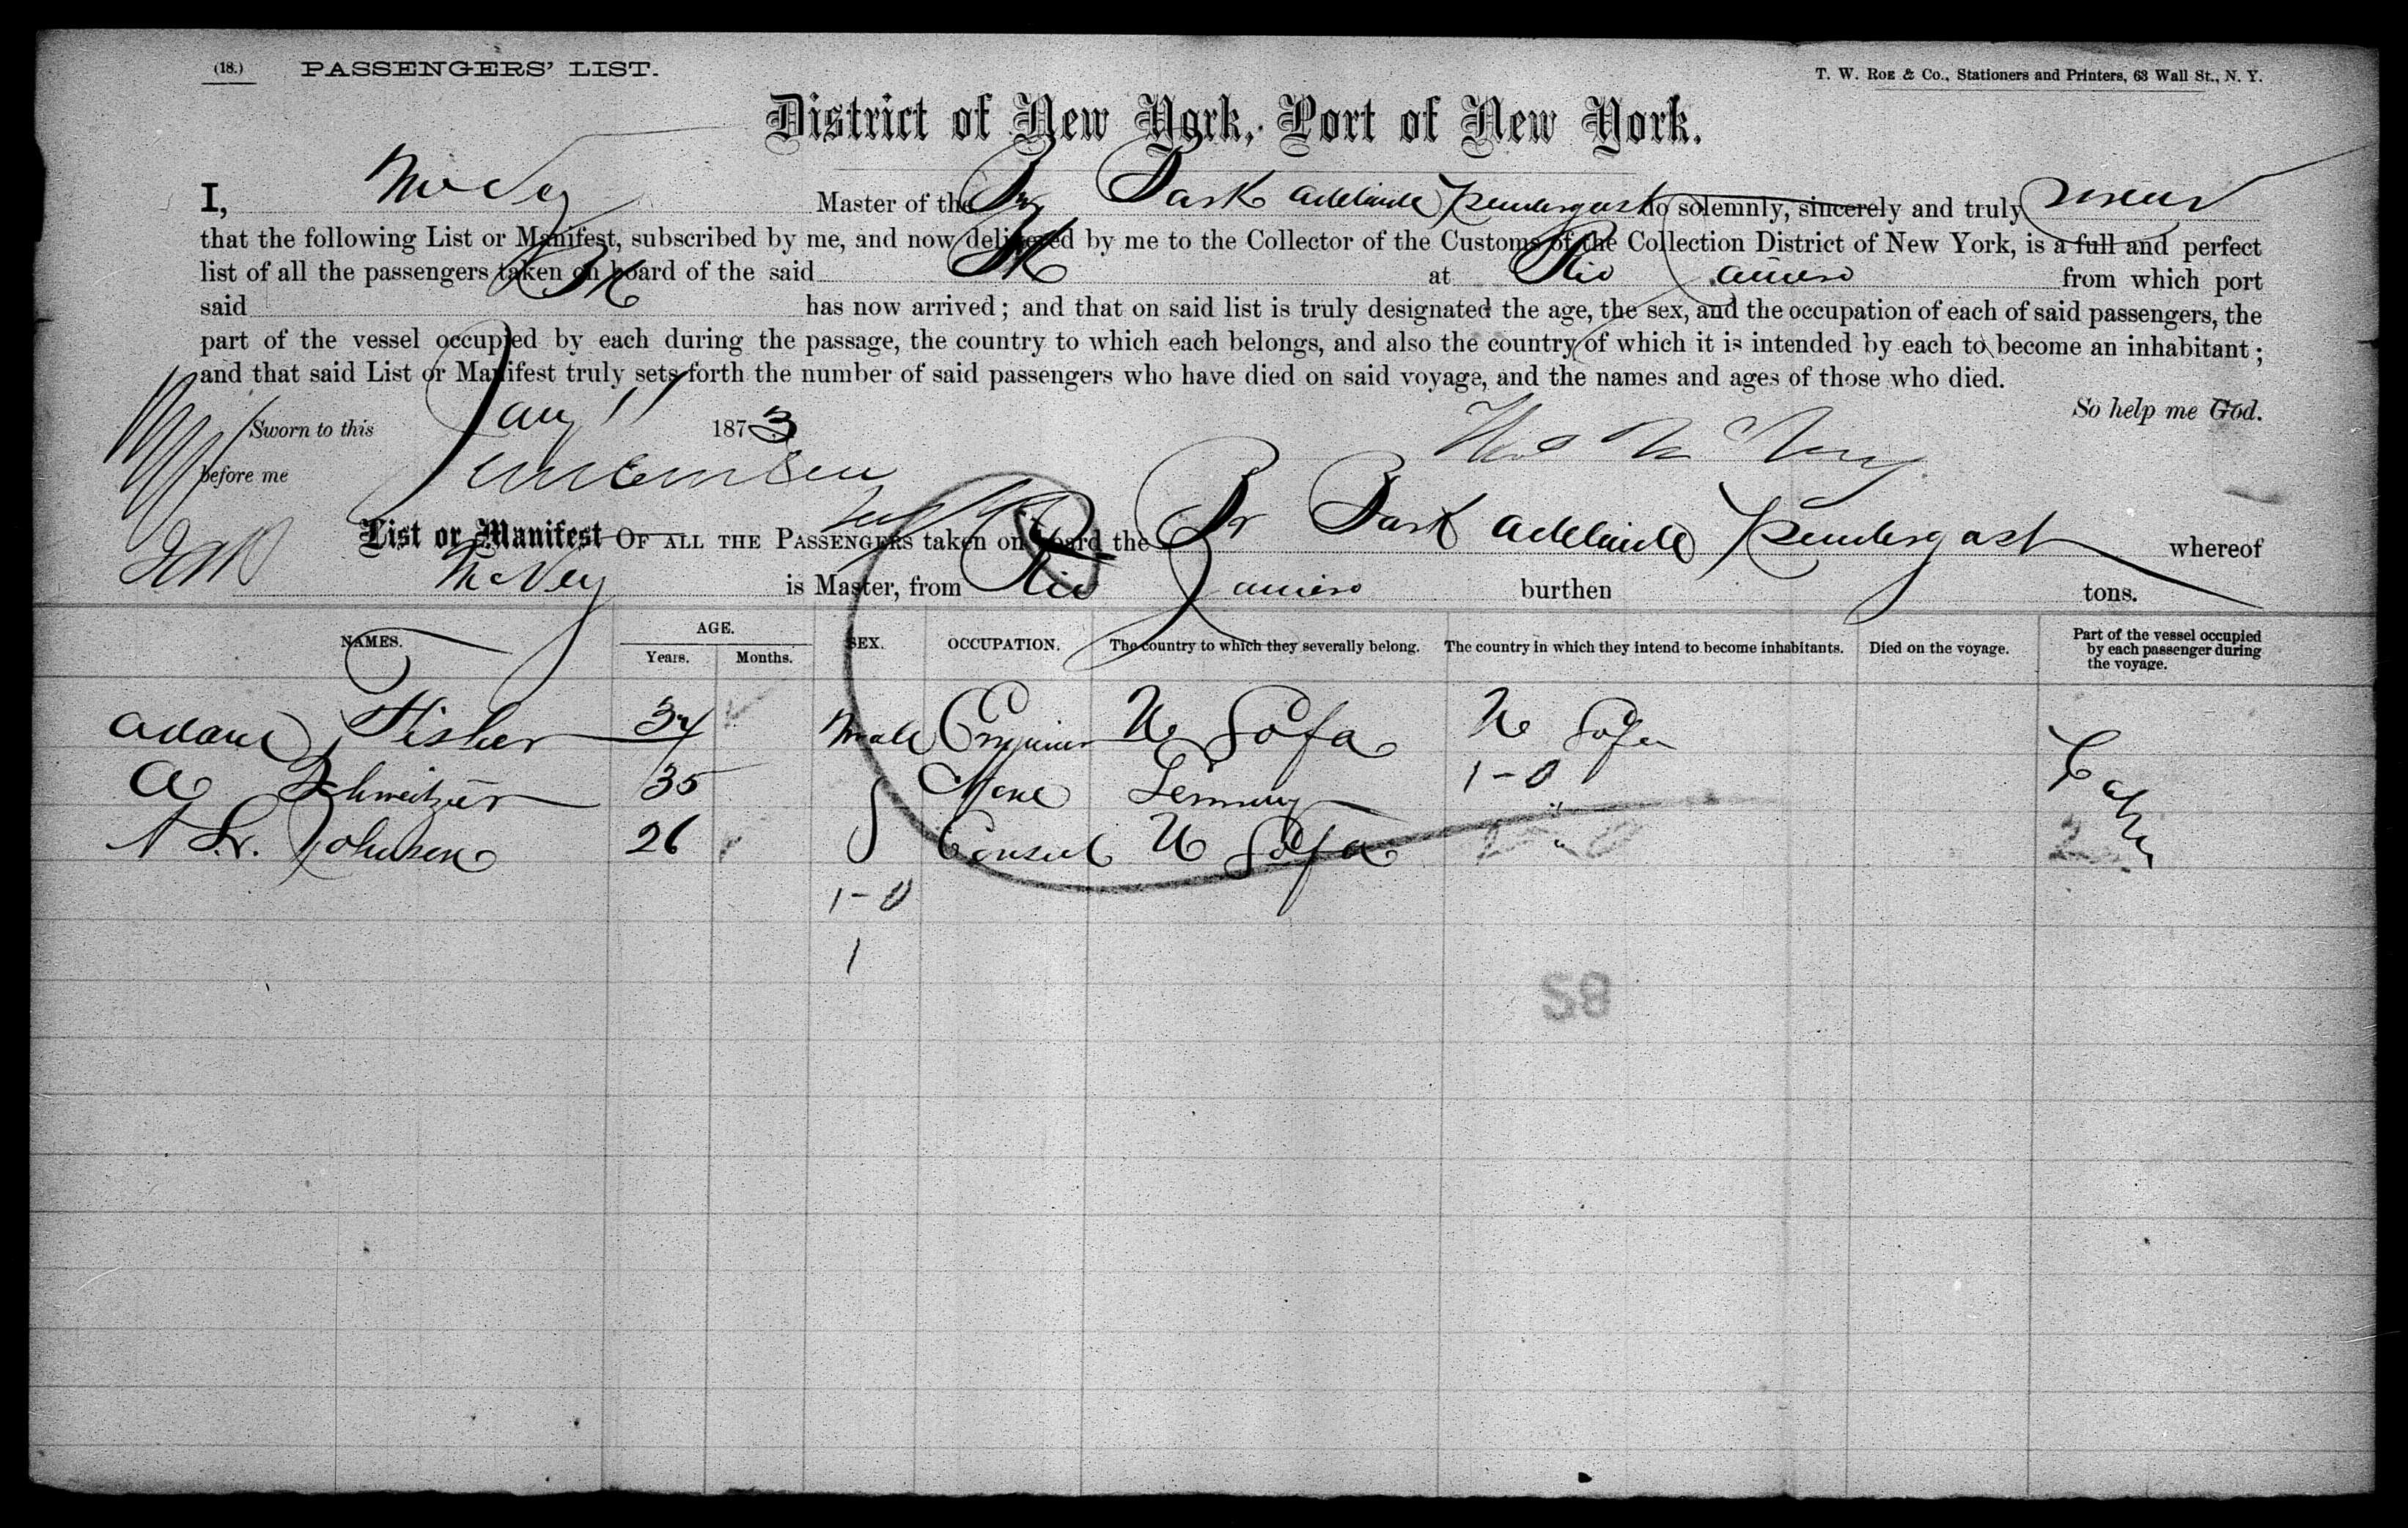 (18.) PASSENGERS' LIST.
T. W. ROE & Co., Stationers and Printers, 63 Wall St., N. Y.
District of New York, Port of New York.
I, McVey Master of the Br Bark Adelaide Pendergast do solemnly, sincerely and truly swear
that the following List or Manifest, subscribed by me, and now delivered by me to the Collector of the Customs of the Collection District of New York, is a full and perfect
list of all the passengers taken on board of the said Bk at Rio Janiero from which port
said Bk has now arrived; and that on said list is truly designated the age, the sex, and the occupation of each of said passengers, the
part of the vessel occupied by each during the passage, the country to which each belongs, and also the country of which it is intended by each to become an inhabitant;
and that said List or Manifest truly sets forth the number of said passengers who have died on said voyage, and the names and ages of those who died.
So help me God.
Sworn to this Jany 11 1873
before me
List or Manifest OF ALL THE PASSENGERS taken on board the Br Bark Adelaide Pendergast whereof
McVey is Master, from Rio Janiero burthen tons.
NAMES. AGE. Years. Months. SEX. OCCUPATION. The country to which they severally belong. The country in which they intend to become inhabitants. Died on the voyage. Part of the vessel occupied by each passenger during the voyage.
Adam Fisher 34 Male Engineer U S of a U S of a Cabin
A Schweitzer 35 None Germany 1-0
Johnson 26 Consul U S of a "
1-0
1